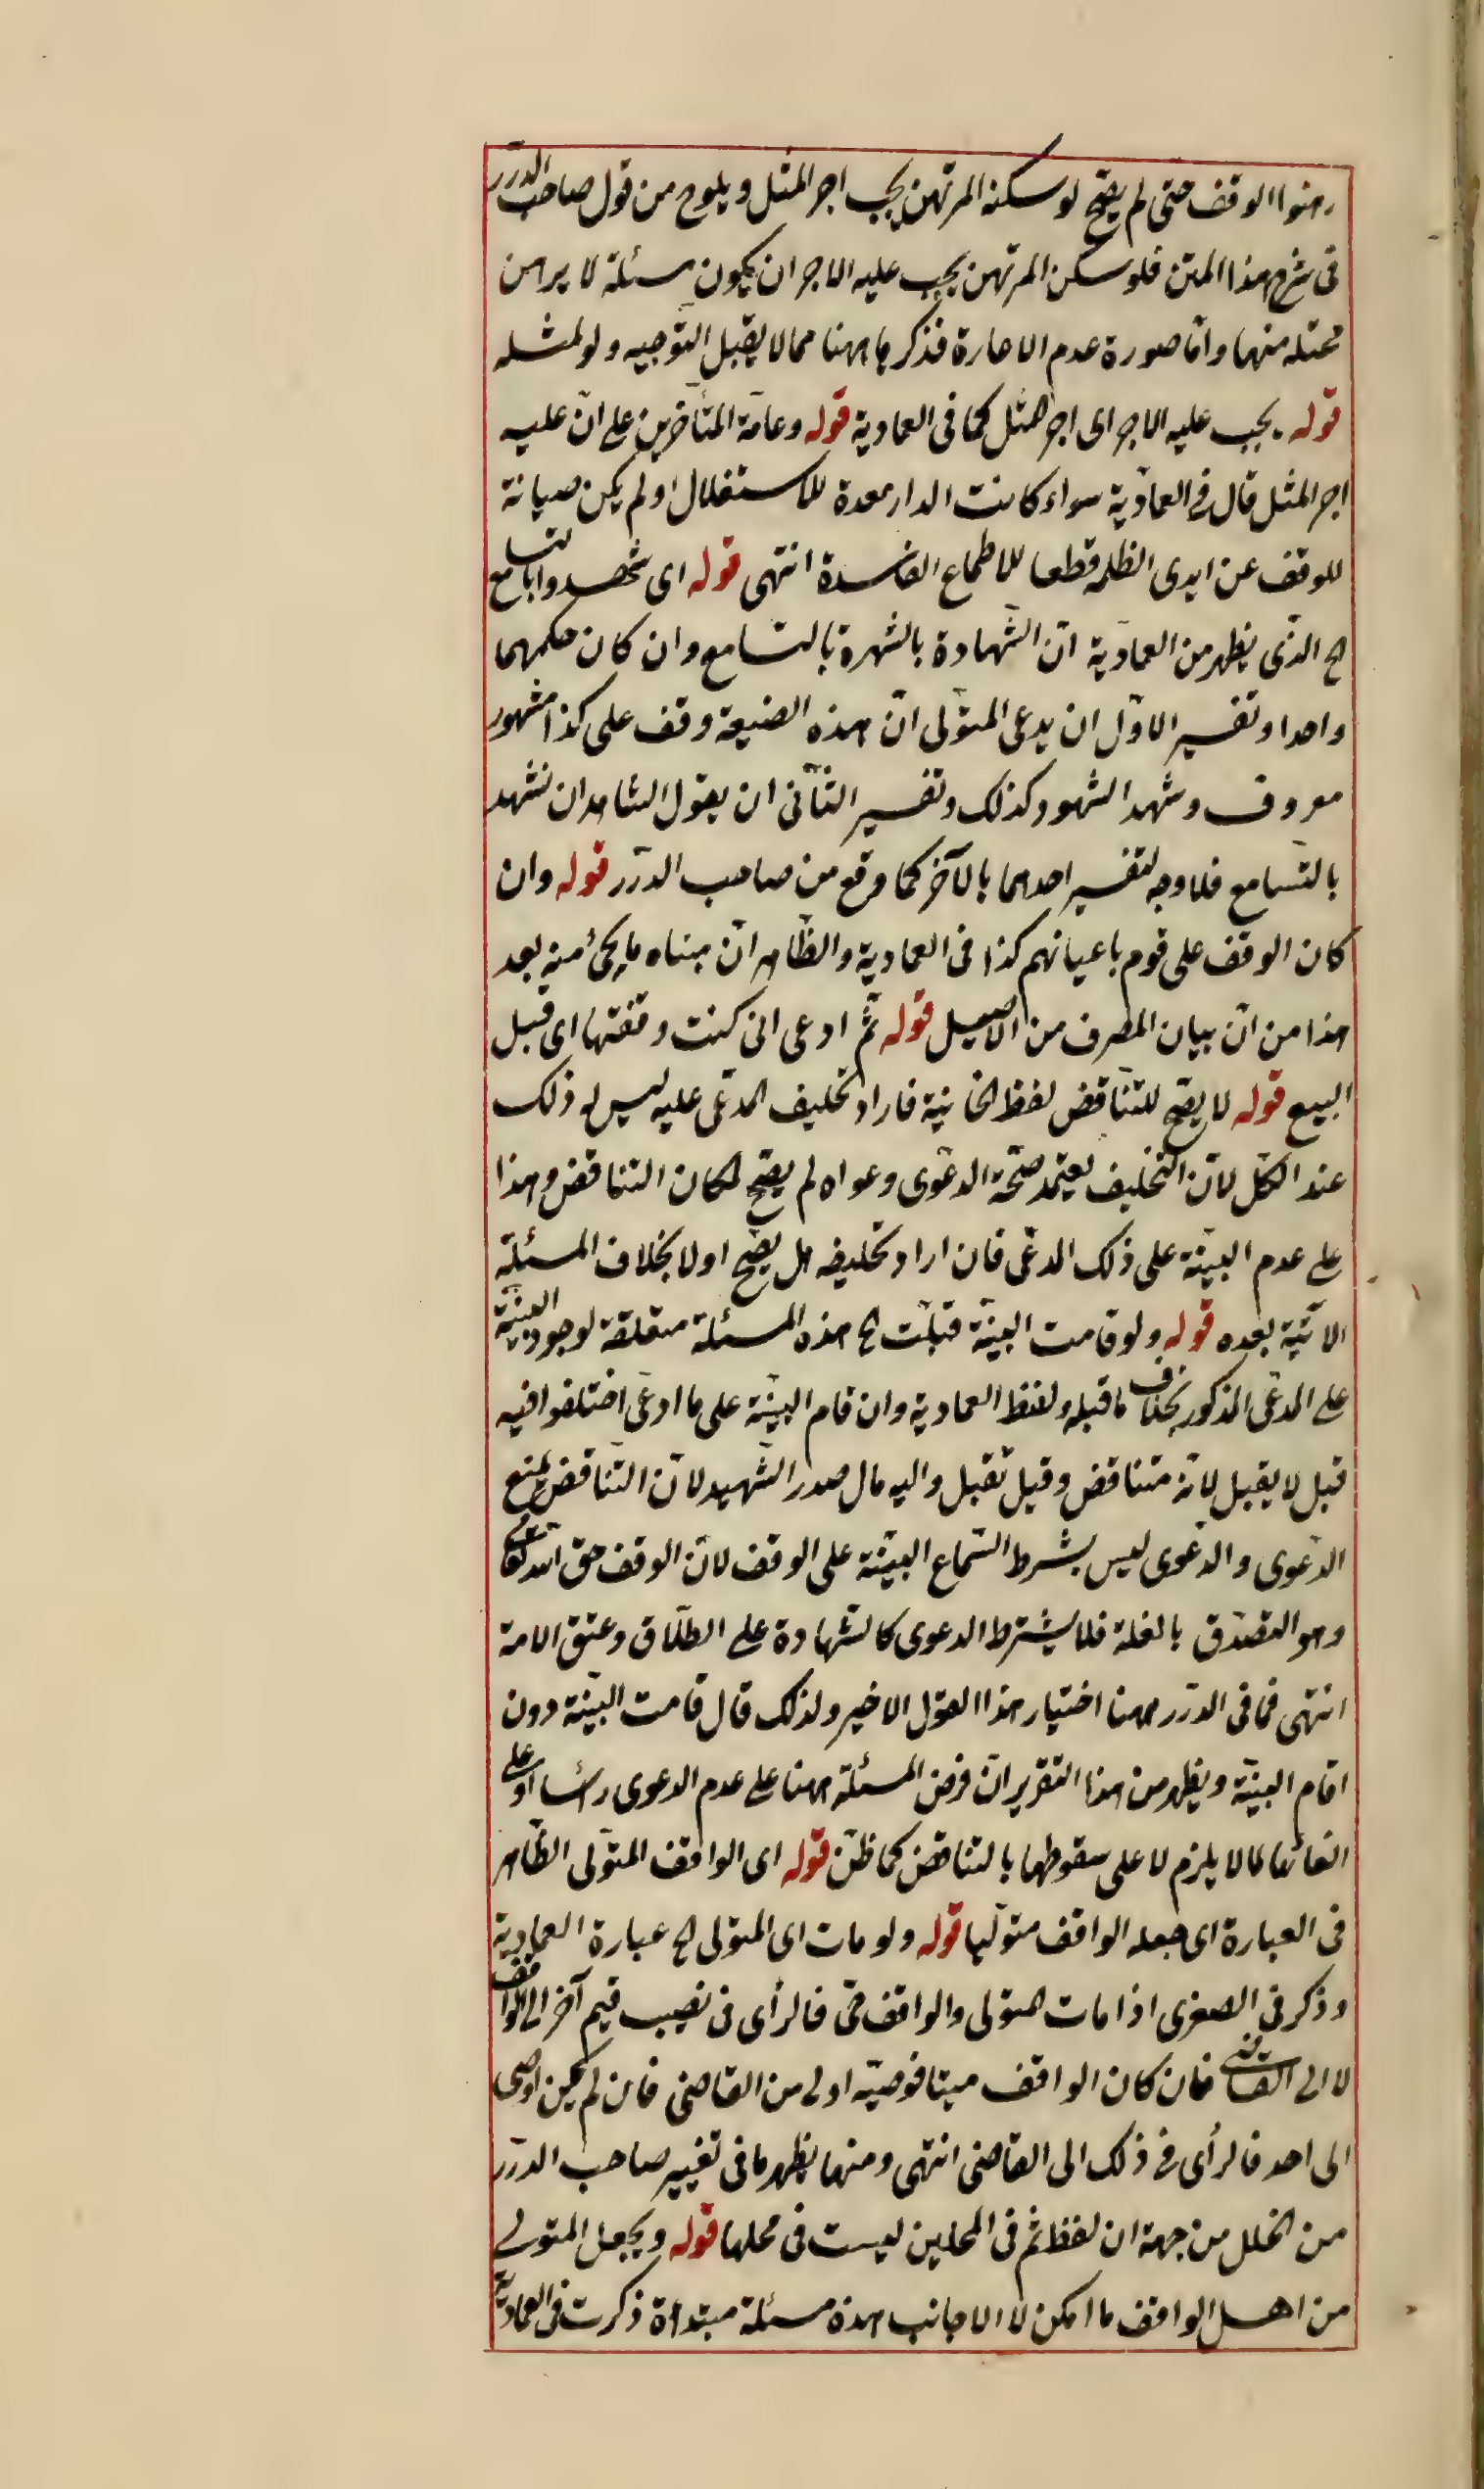 رهنوا الوقف حتى لم يصح لو سكنه المرتهن يجب اجر المثل ويلوح من قول صاحب الدرر
فى شرح هذا المتن فلو سكن المرتهن يجب عليه الاجر ان يكون مسئلة لا يرهن
محتملة منها وامّا صورة عدم الاعارة فذكرها ههنا مما لا يقبل التوجيه ولو لمثله
قوله يجب عليه الاجر اى اجر المثل كما فى العمادية قوله وعامّة المتأخرين على انّ عليه
اجر المثل قال فى العماديّة سواء كانت الدار معدة للاستغلال او لم يكن صيانة
للوقف عن ايدى الظلمة وقطعا للاطماع الفاسدة انتهى قوله اى شهدوا بالتسامع
الخ الذى يظهر من العماديّة انّ الشّهادة بالشهرة بالتسامع وان كان حكمهما
واحدا وتفسير الاوّل ان يدعى المتولى انّ هذه الضيعة وقف على كذا مشهور
معروف وشهد الشهود كذلك وتفسير الثّانى ان يقول الشاهدان نشهد
بالتّسامع فلا وجه لتفسير احدهما بالآخر كما وقع من صاحب الدرر قوله وان
كان الوقف على قوم باعيانهم كذا فى العمادية والظّاهر انّ مبناه ما يجئ منه بعد
هذا من انّ بيان المصرف من الاصل قوله ثمّ ادعى انى كنت وقفتها اى قبل
البيع قوله لا يصح للتّناقض لفظ الخانية فاراد تحليف المدّعى عليه ليس له ذلك
عند الكل لانّ التحليف يعتمد صحّة الدعوى ودعواه لم يصح لمكان التناقض وهذا
على عدم البيّنة على ذلك المدّعى فان اراد تحليفه هل يصح او لا بخلاف المسئلة
الآتية بعده قوله ولو قامت البيّنة قبلت الخ هذه المسئلة متعلقة لوجود البيّنة
على المدعى المذكور بخلاف ما قبله ولفظ العمادية وان قام البيّنة على ما ادعى اختلفوا فيه
قيل لا يقبل لانّه متناقض وقيل تقبل واليه مال صدر الشّهيد لانّ التّناقض يمنع
الدّعوى والدّعوى ليس بشرط السّماع البيّنة على الوقف لانّ الوقف حق الله تعالى
وهو التصدّق بالغلة فلا يشترط الدعوى كالشهادة على الطلاق وعتق الامة
انتهى فما فى الدّرر ههنا اختيار هذا القول الاخير ولذلك قال قامت البيّنة دون
اقام البيّنة ويظهر من هذا التقرير انّ فرض المسئلة ههنا على عدم الدعوى رأسا او على
الغائها لما لا يلزم لا على سقوطها بالتناقض كما ظنّ قوله اى الواقف المتولى الظّاهر
فى العبارة اى جعله الواقف متوليا قوله ولو مات اى المتولى الخ عبارة العمادية
وذكر فى الصغرى اذا مات المتولى والواقف حىّ فالرأى فى نصب قيم آخر الى الواقف
لا الى القاضى فان كان الواقف ميتا فوصيّه اولى من القاضى فان لم يكن اوصى
الى احد فالرأى فى ذلك الى القاضى انتهى ومنها يظهر ما فى تغيير صاحب الدرر
من الخلل من جهة ان لفظ ثم فى المحلين ليست فى محلها قوله ويجعل المتولى
من اهل الواقف ما امكن لا الاجانب هذه مسئلة مبتدأة ذكرت فى العماديّة